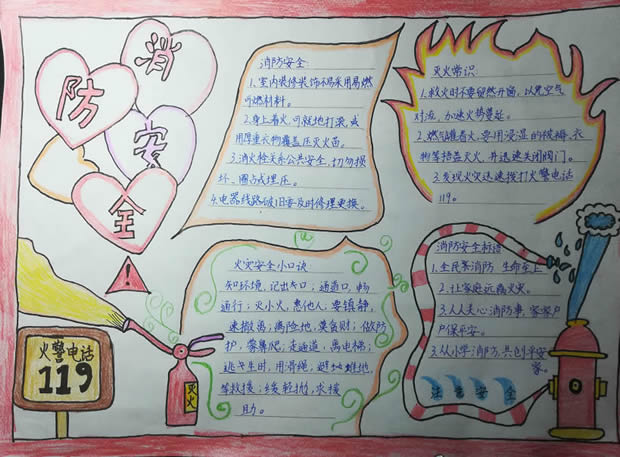 消
防
安
全
火警电话
119
灭火
消防安全:
1.室内装修装饰不易采用易燃
可燃材料。
2.身上着火,可就地打滚,或
用厚重衣物覆盖压灭火苗。
3.消火栓关系公共安全,切勿损
坏、圈占或埋压。
4.电器线路破旧要及时修理更换。
灭火常识:
1.救火时不要贸然开窗,以免空气
对流,加速火势蔓延。
2.燃气罐着火,要用浸湿的被褥、衣
物等捂盖灭火,并迅速关闭阀门。
3.发现火灾迅速拨打火警电话
119。
火灾安全小口诀
知环境,记出口;通道口,畅
通行;灭小火,惠他人;要镇静,
速撤离;离险地,莫贪财;做防
护,蒙鼻爬;走通道,离电梯;
逃生时,用滑绳;避
等救援;缓轻抛,求援
助。
消防安全标语
1.全民来消防 生命至上
2.让家庭远离火灾。
3.人人关心消防事,家家户
户保平安。
3.从小学消防,共创平安
家。
注意安全